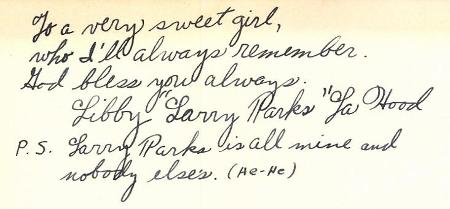 To a very sweet girl,
who I'll always remember.
God bless you always.
Libby "Larry Parks" La Hood
P.S. Larry Parks is all mine and
nobody elses. (He-He)